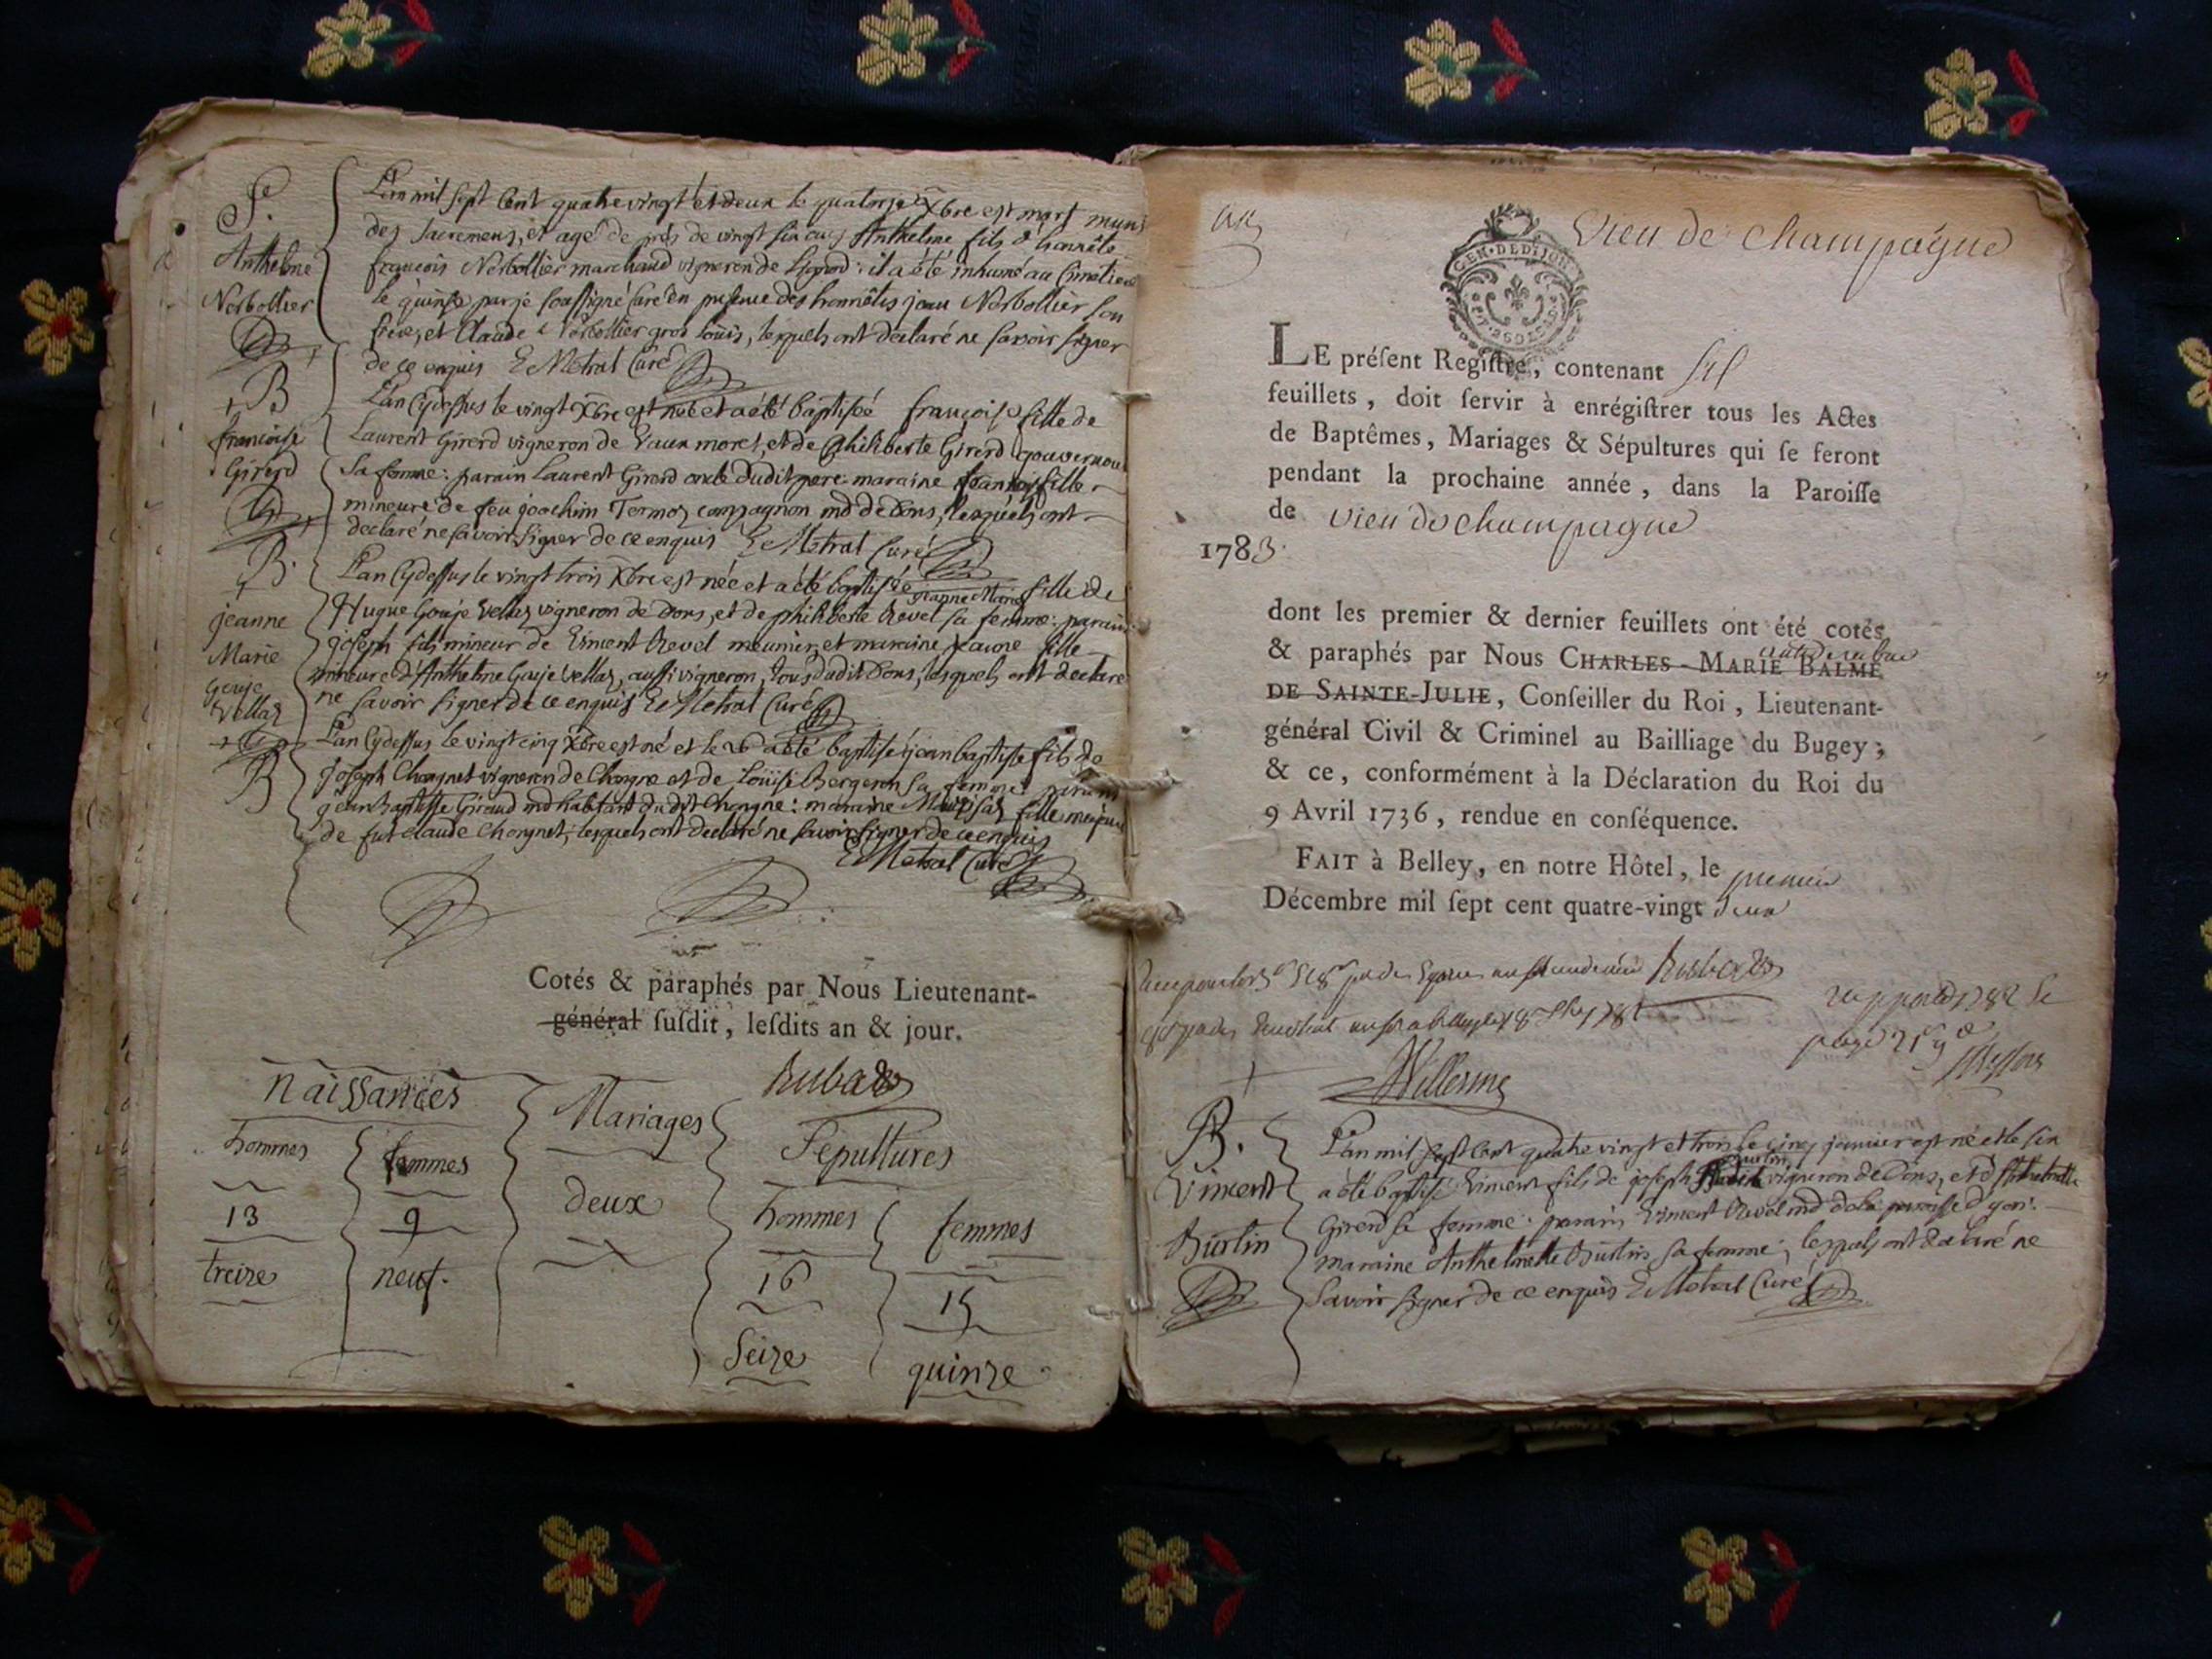 Se
Anthelme
Norbollier
L'an mil sept cent quatre vingt et deux le quatorze Xbre est mort muni
des sacremens, et agé de près de vingt six ans Anthelme fils d'honnête
françois Norbollier marchand vigneron de : il a été inhumé au Cimetiere
le quinze par je soussigné Curé en presence des honnêtes jean Norbollier son
frère, et Claude Norbollier gros louis, lesquels ont declaré ne savoir signer
de ce enquis E Metral Curé
B
françoise
Girerd
L'an cydessus le vingt Xbre est née et a été baptisée françoise fille de
Laurent Girerd vigneron de Vaux moret, et de Philiberte Girerd gouvernou
sa femme : parain Laurent Girerd oncle dudit pere : maraine fille
mineure de feu joachim Termoz compagnon md de Dons, lesquels ont
declaré ne savoir signer de ce enquis E Metral Curé
B.
jeanne
Marie
Gouje
Vellaz
L'an cydessus le vingt trois Xbre est née et a été baptisée jeanne Marie fille de
Hugue Gouje Vellaz vigneron de Dons, et de philiberte Revel sa femme : parain
joseph fils mineur de Vincent Revel meunier, et maraine fille
mineure d'Anthelme Gouje Vellaz, aussi vigneron, tous dudit Dons, lesquels ont declaré
ne savoir signer de ce enquis E Metral Curé
B
L'an cydessus le vingt cinq Xbre est né et le 26 a été baptisé jean baptiste fils de
joseph Chongnet vigneron de Chongne et de Louise Bergeron sa femme : parain
jean Baptiste Giraud md habitant dudit Chongne : maraine fille majeure
de fut Claude Chongnet, lesquels ont declaré ne savoir signer de ce enquis
E Metral Curé
Cotés & paraphés par Nous Lieutenant-
général susdit, lesdits an & jour.
Rubat
naissances
hommes
13
treize
femmes
9
neuf.
Mariages
deux
Sepultures
hommes
16
Seize
femmes
15
quinze
Vieu de Champagne
GEN. DE DIJON
LE présent Registre, contenant six
feuillets, doit servir à enrégistrer tous les Actes
de Baptêmes, Mariages & Sépultures qui se feront
pendant la prochaine année, dans la Paroisse
de vieu de champagne
1783.
dont les premier & dernier feuillets ont été cotés
& paraphés par Nous CHARLES-MARIE BALME
DE SAINTE-JULIE, Conseiller du Roi, Lieutenant-
général Civil & Criminel au Bailliage du Bugey;
& ce, conformément à la Déclaration du Roi du
9 Avril 1736, rendue en conséquence.
FAIT à Belley, en notre Hôtel, le premier
Décembre mil sept cent quatre-vingt deux
Rubat
Willerme
B.
Vincent
Burtin
L'an mil sept cent quatre vingt et trois le cinq janvier est né et le six
a été baptisé Vincent fils de joseph Burtin vigneron de Dons, et d'Anthelmette
Girerd sa femme : parain Vincent Revel md de la paroisse d'yon :
maraine Anthelmette Burtin sa femme ; lesquels ont declaré ne
savoir signer de ce enquis E Metral Curé